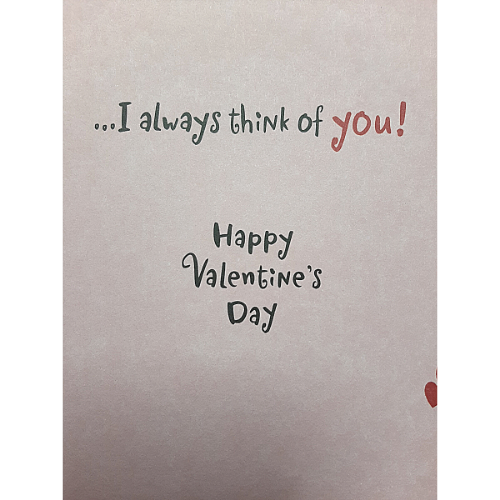 ...I always think of you!
Happy
Valentine's
Day